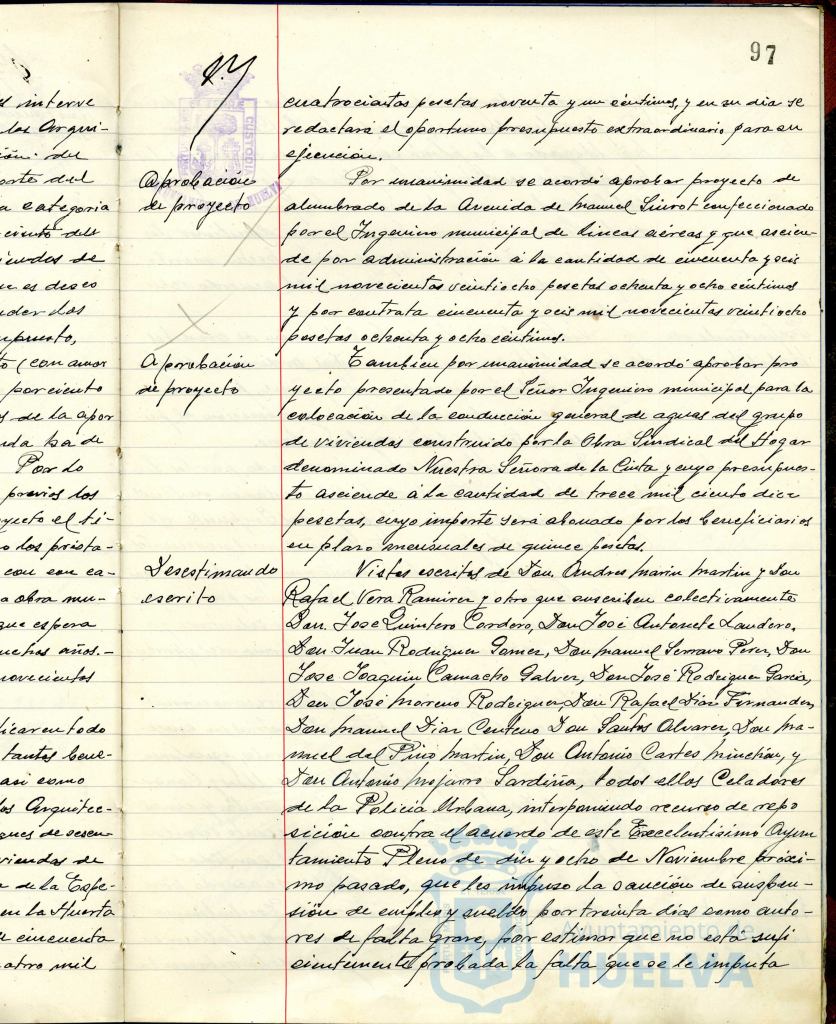 97
s interve
los Arqui-
ción del
orte del
a categoria
ciento del
iendas de
ue es deseo
nder los
upuesto,
to (con amor
por ciento
s de la apor
nda ha de
Por lo
previos los
oyecto el ti-
o los presta-
con en ca-
a obra mu-
que espera
uchos años.-
novecientos
dicar en todo
tantos bene-
asi como
los Arquitec-
ques de sesen
viendas de
r de la Espe-
en la Huerta
e cincuenta
atro mil
CUSTODI
Aprobación
de proyecto
Aprobación
de proyecto
Desestimando
escrito
cuatrocientas pesetas noventa y un céntimos, y en su dia se
redactará el oportuno presupuesto extraordinario para su
ejecución.
Por unanimidad se acordó aprobar proyecto de
alumbrado de la Avenida de Manuel Siurot confeccionado
por el Ingeniero municipal de lineas aéreas y que ascien-
de por administración á la cantidad de cincuenta y seis
mil novecientas veintiocho pesetas ochenta y ocho céntimos
y por contrata cincuenta y seis mil novecientas veintiocho
pesetas ochenta y ocho céntimos.
Tambien por unanimidad se acordó aprobar pro
yecto presentado por el Señor Ingeniero municipal para la
colocación de la conducción general de aguas del grupo
de viviendas construido por la Obra Sindical del Hogar
denominado Nuestra Señora de la Cinta y cuyo presupues-
to asciende á la cantidad de trece mil ciento diez
pesetas, cuyo importe será abonado por los beneficiarios
en plazo mensuales de quince pesetas.
Vistos escritos de Don Andres Marin Martin y Don
Rafael Vera Ramirez y otro que suscriben colectivamente
Don Jose Quintero Cordero, Don José Antonete Landero,
Don Juan Rodriguez Gomez, Don Manuel Serrano Perez, Don
Jose Joaquin Camacho Galvez, Don José Rodriguez Garcia,
Don José Moreno Rodriguez, Don Rafael Diaz Fernandez,
Don Manuel Diaz Centeno Don Santos Alvarez, Don Ma-
nuel del Pino Martin, Don Antonio Cartes Minchon, y
Don Antonio Mojarro Sardiña, todos ellos Celadores
de la Policia Urbana, interponiendo recurso de repo
sición contra el acuerdo de este Excelentisimo Ayun
tamiento Pleno de diez y ocho de Noviembre próxi-
mo pasado, que les impuso la sanción de suspen-
sión de empleo y sueldo por treinta dias como auto-
res de falta grave, por estimar que no está sufi
cientemente probada la falta que se le imputa
Ayuntamiento de
HUELVA